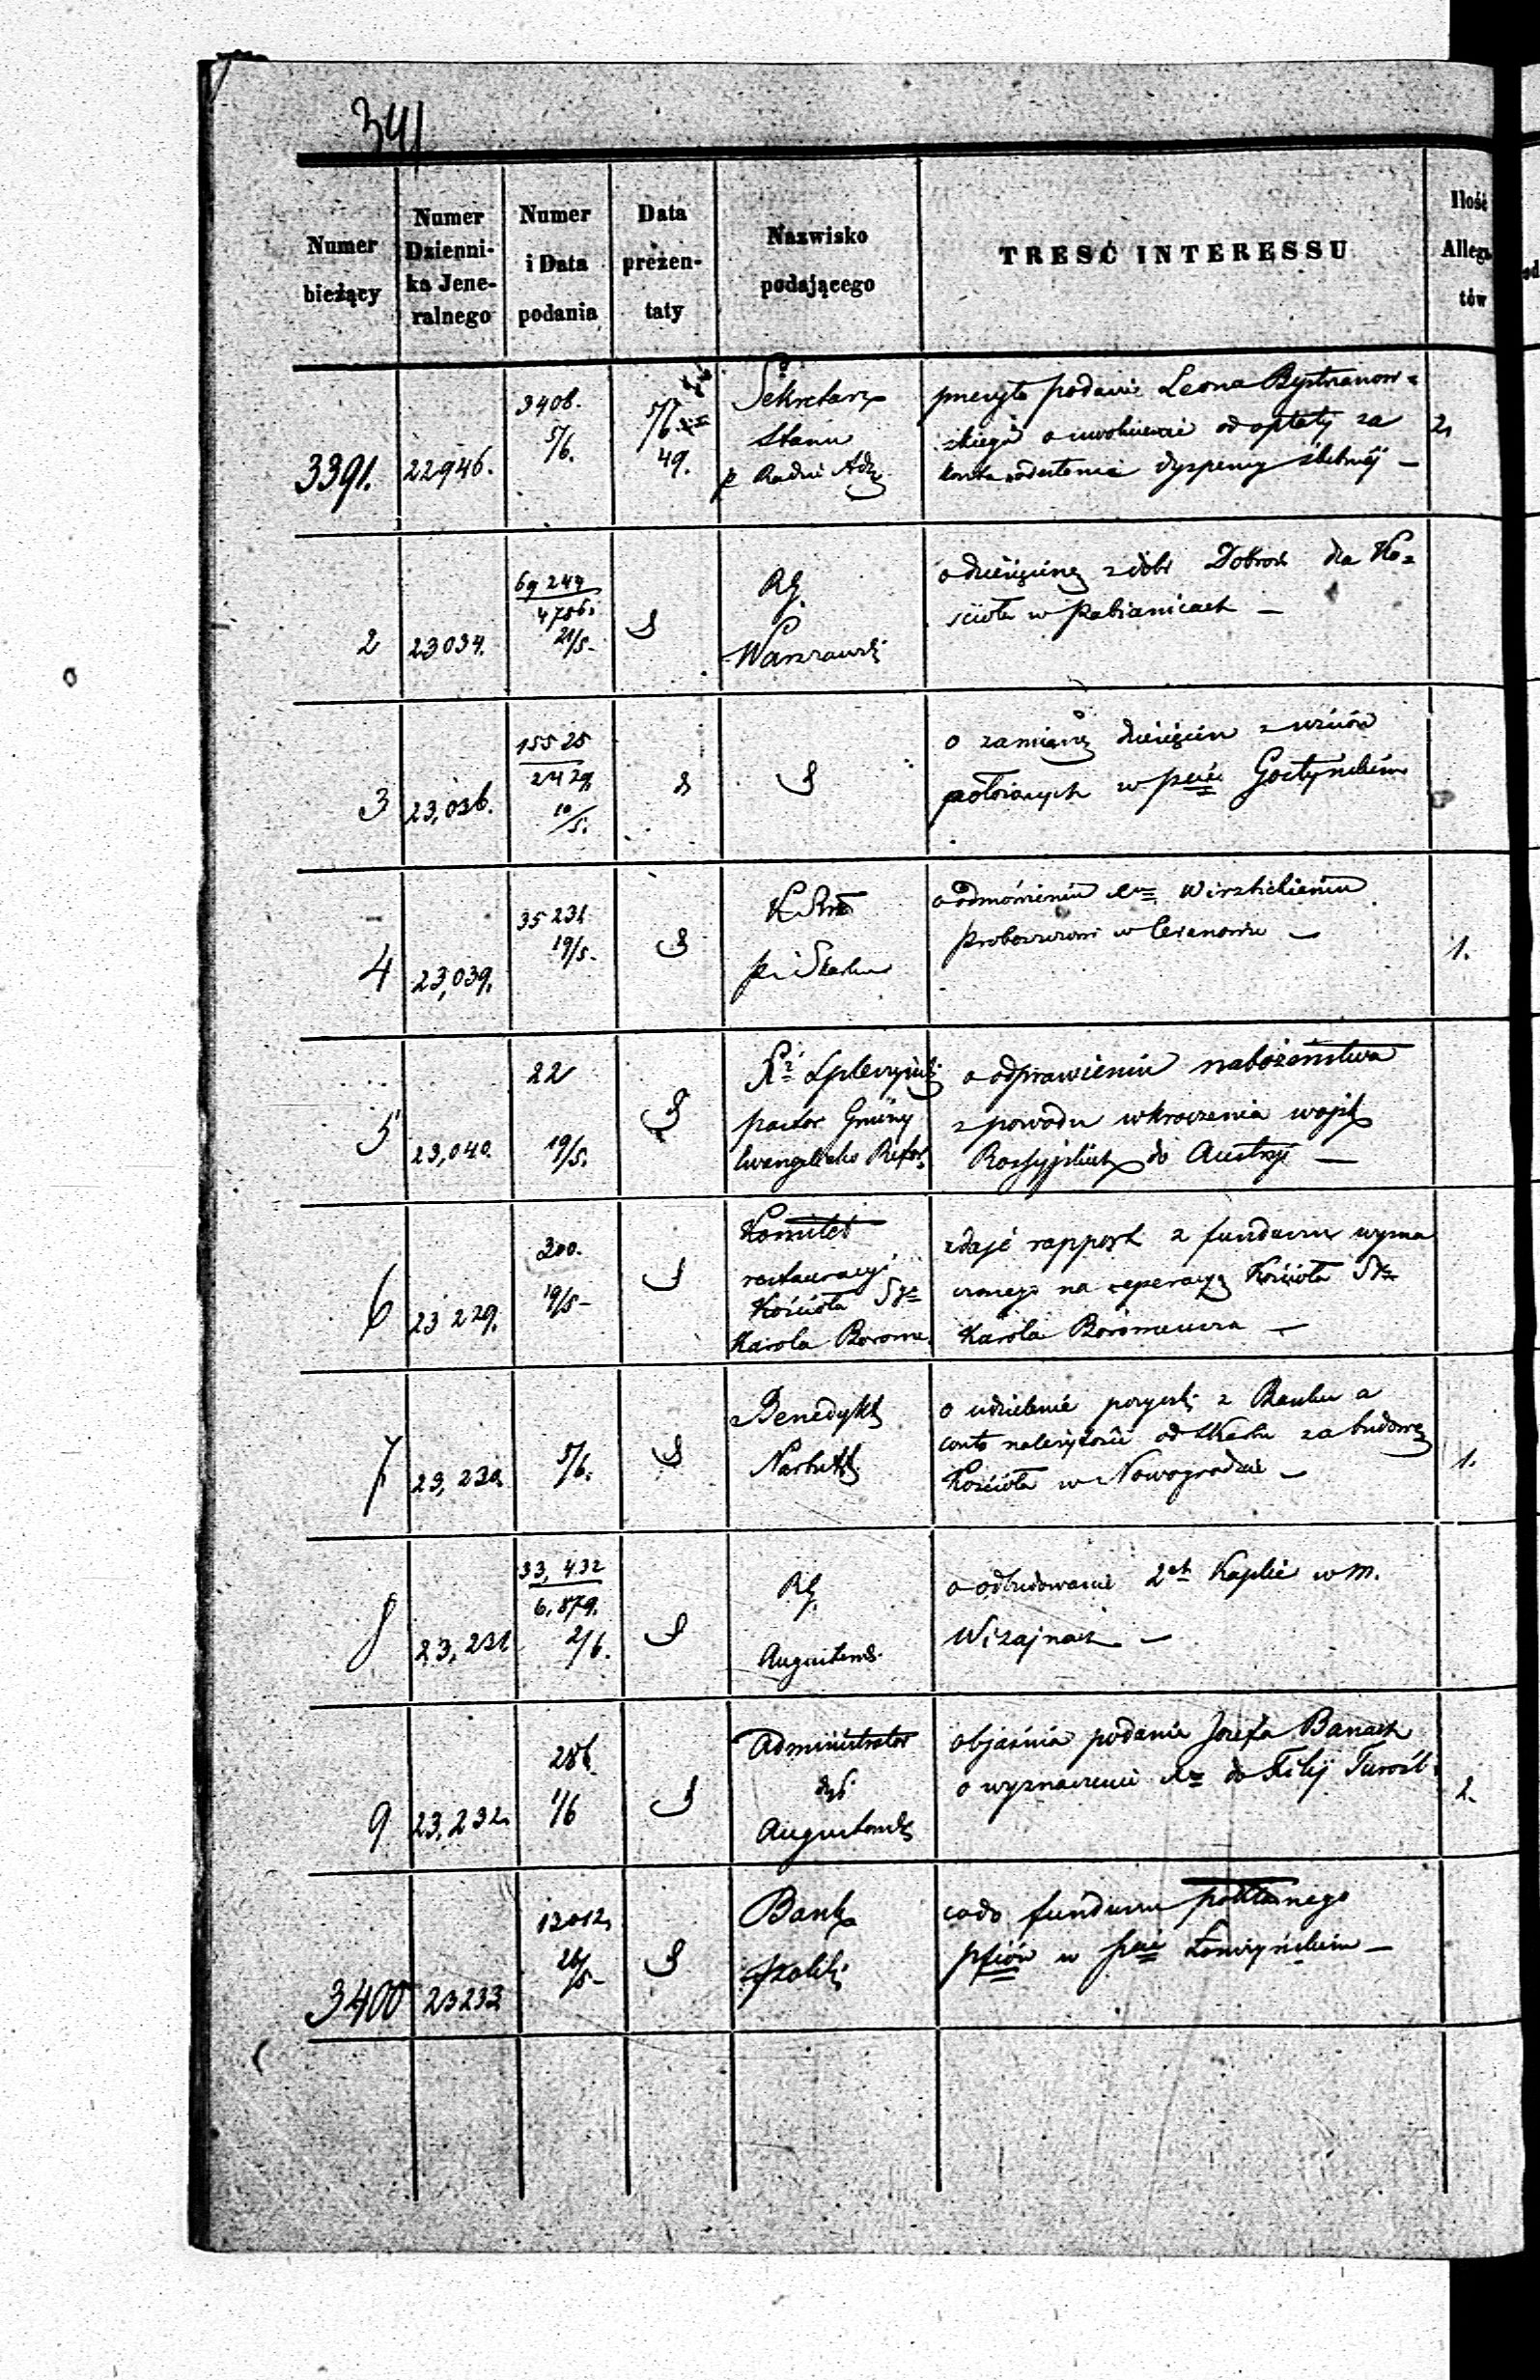 341
Numer bieżący
Numer Dzienni-ka Jene-ralnego
Numer i Data podania
Data prezen-taty
Nazwisko podającego
TREŚĆ INTERESSU
Ilość Allega-tów
3391. 22946. 3408. 5/6. 5/6 49. Sekretarz Stanu p Radzie Adz
podanie Leona Bystrzanow=
skiego o uwolnienie od opłaty za
dyspensy ślubnéj — 2
2 23034. 69 244 4756. 21/5. Rz. Warszawski
o dziesięcinę z dóbr Dobroń dla Ko=
ścioła w Pabianicach —
3 23,036. 155 25 2429. 10/5.
o zamianę dziesięcin z wsiów
położonych w pcie Gostyńskim
4 23,039. 35 231. 19/5. Skarbu
o odmówieniu Xu Wierzbickiemu
Proboszczowi w —
1.
5 23,040. 22 19/5. Xz
pastor Gminy
Ewangelicko Refor.
o odprawieniu nabożeństwa
z powodu wkroczenia wojsk
Rossyjskich do Austryi —
6 23 229. 300. 19/5 — Komitet
restauracyi
Kościoła Sgo
Karola Borome.
zdaje rapport z funduszu wyzna
czonego na reperacyą Kościoła Sgo
Karola Boromeusza —
7 23,230 5/6. Benedykt
Narbutt
o udzielenie pożyczki z Banku a
conto należytości od Skarbu za budowę
Kościoła w Nowogrodzie —
1.
8 23,231 33,432 6,879. 2/6. Rz. Augustows.
o odbudowanie 2ch Kaplic w m.
Wiżajnach —
9 23,232. 286 1/6 Administrator
dyi
Augustowsk
objaśnia podanie Józefa Banach
o wyznaczenie Xa do Filij Turośl.
2.
3400 23233 12012 26/5 — Bank
Polski
co do funduszu
w pcie Łomżyńskim —